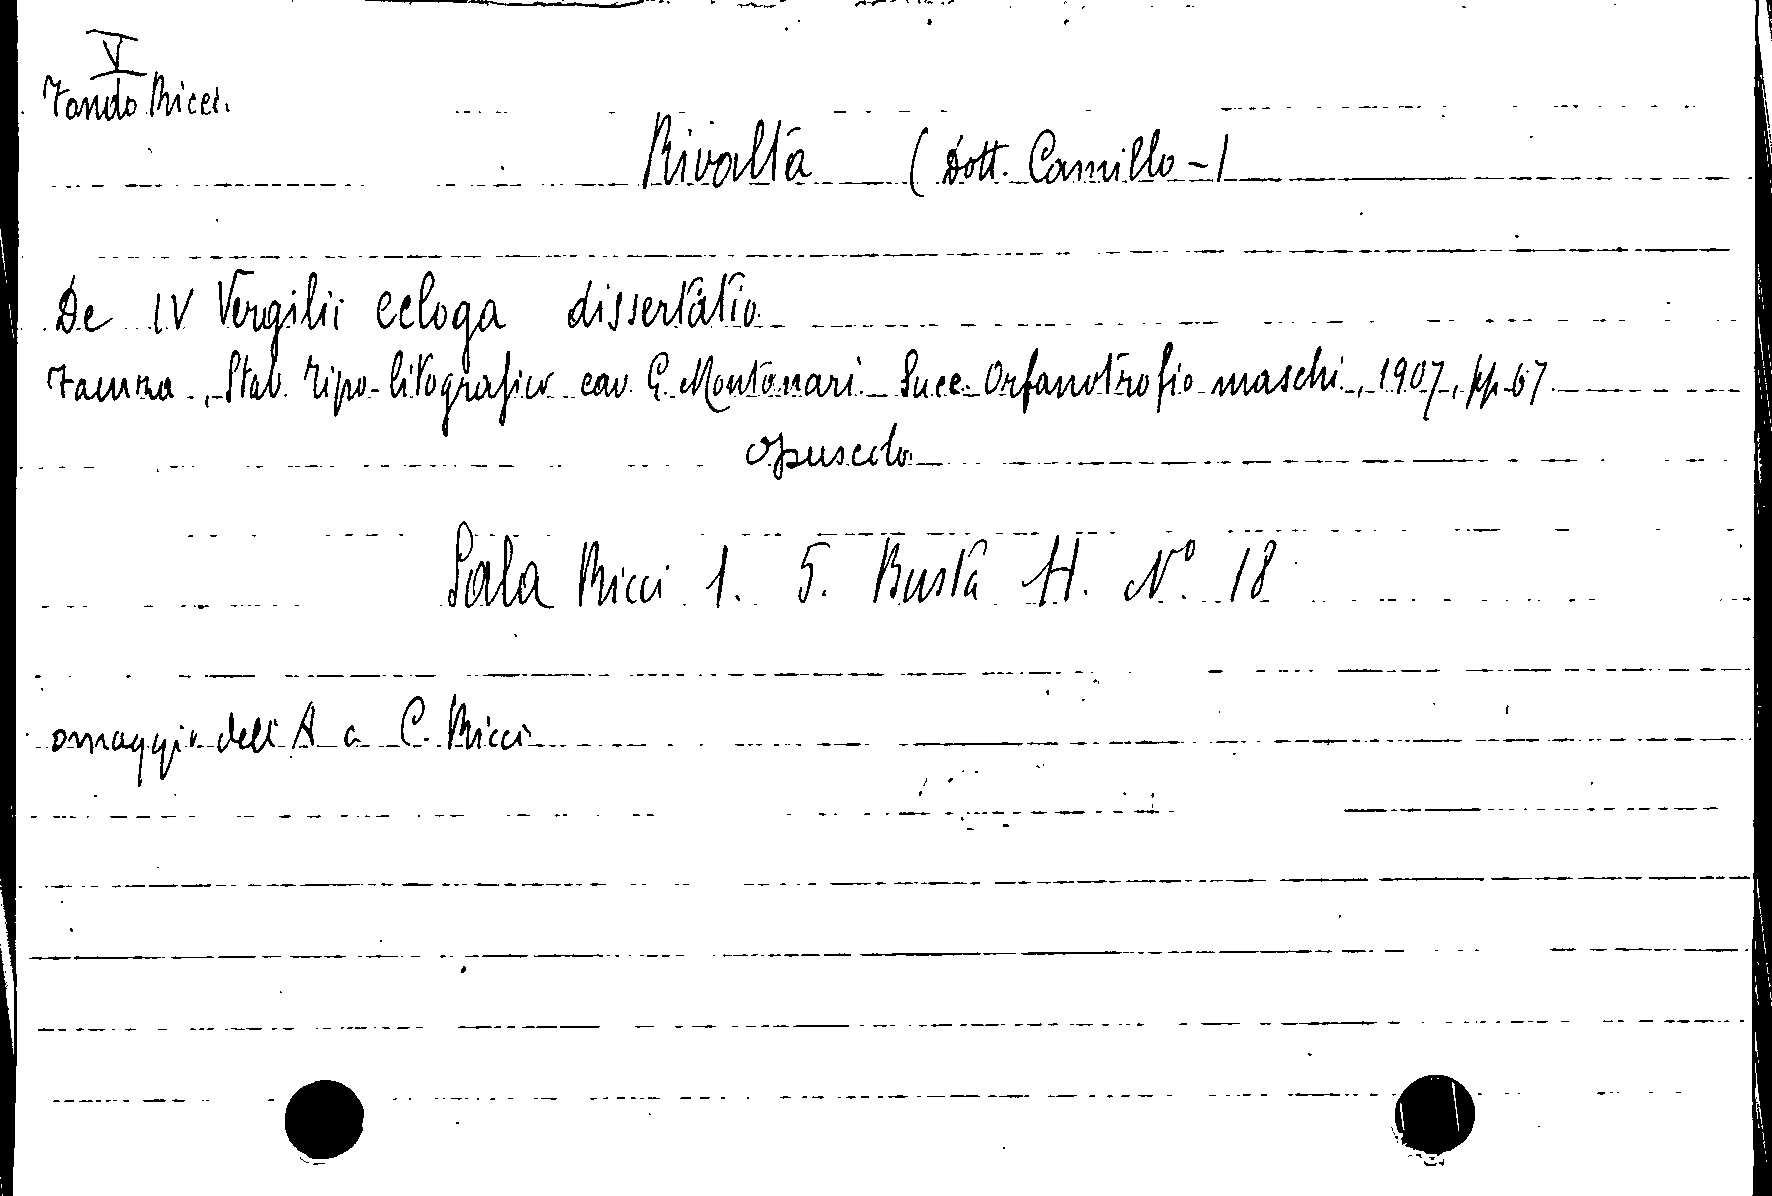 V
Fondo Ricci.
Rivalta (Dott. Camillo -)
De IV Vergilii ecloga dissertatio
Faenza, Stab. Tipo-litografico cav. G. Montanari Succ. Orfanotrofio maschi, 1907, pp. 67
opuscolo
Sala Ricci 1. 5. Busta H. N° 18
omaggio dell'A a C. Ricci